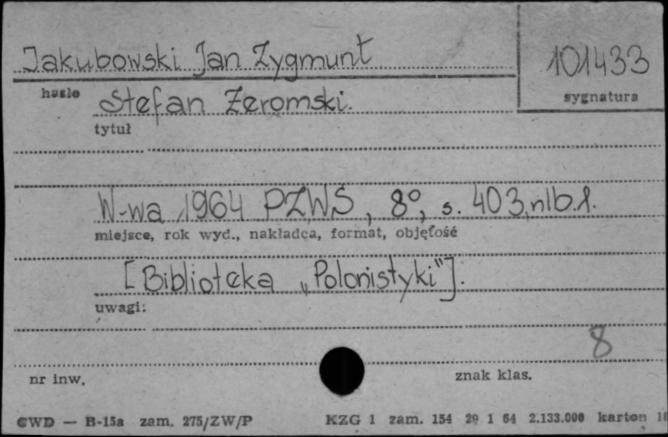 Jakubowski Jan Zygmunt 101433
hasło sygnatura
Stefan Żeromski.
tytuł
W-wa, 1964 PZWS, 8°, s. 403, nlb. 1.
miejsce, rok wyd., nakładca, format, objętość
[Biblioteka „Polonistyki"].
uwagi:
8
nr inw. znak klas.
CWD — B-15a zam. 275/ZW/P KZG 1 zam. 154 29 1 64 2.133.000 karton